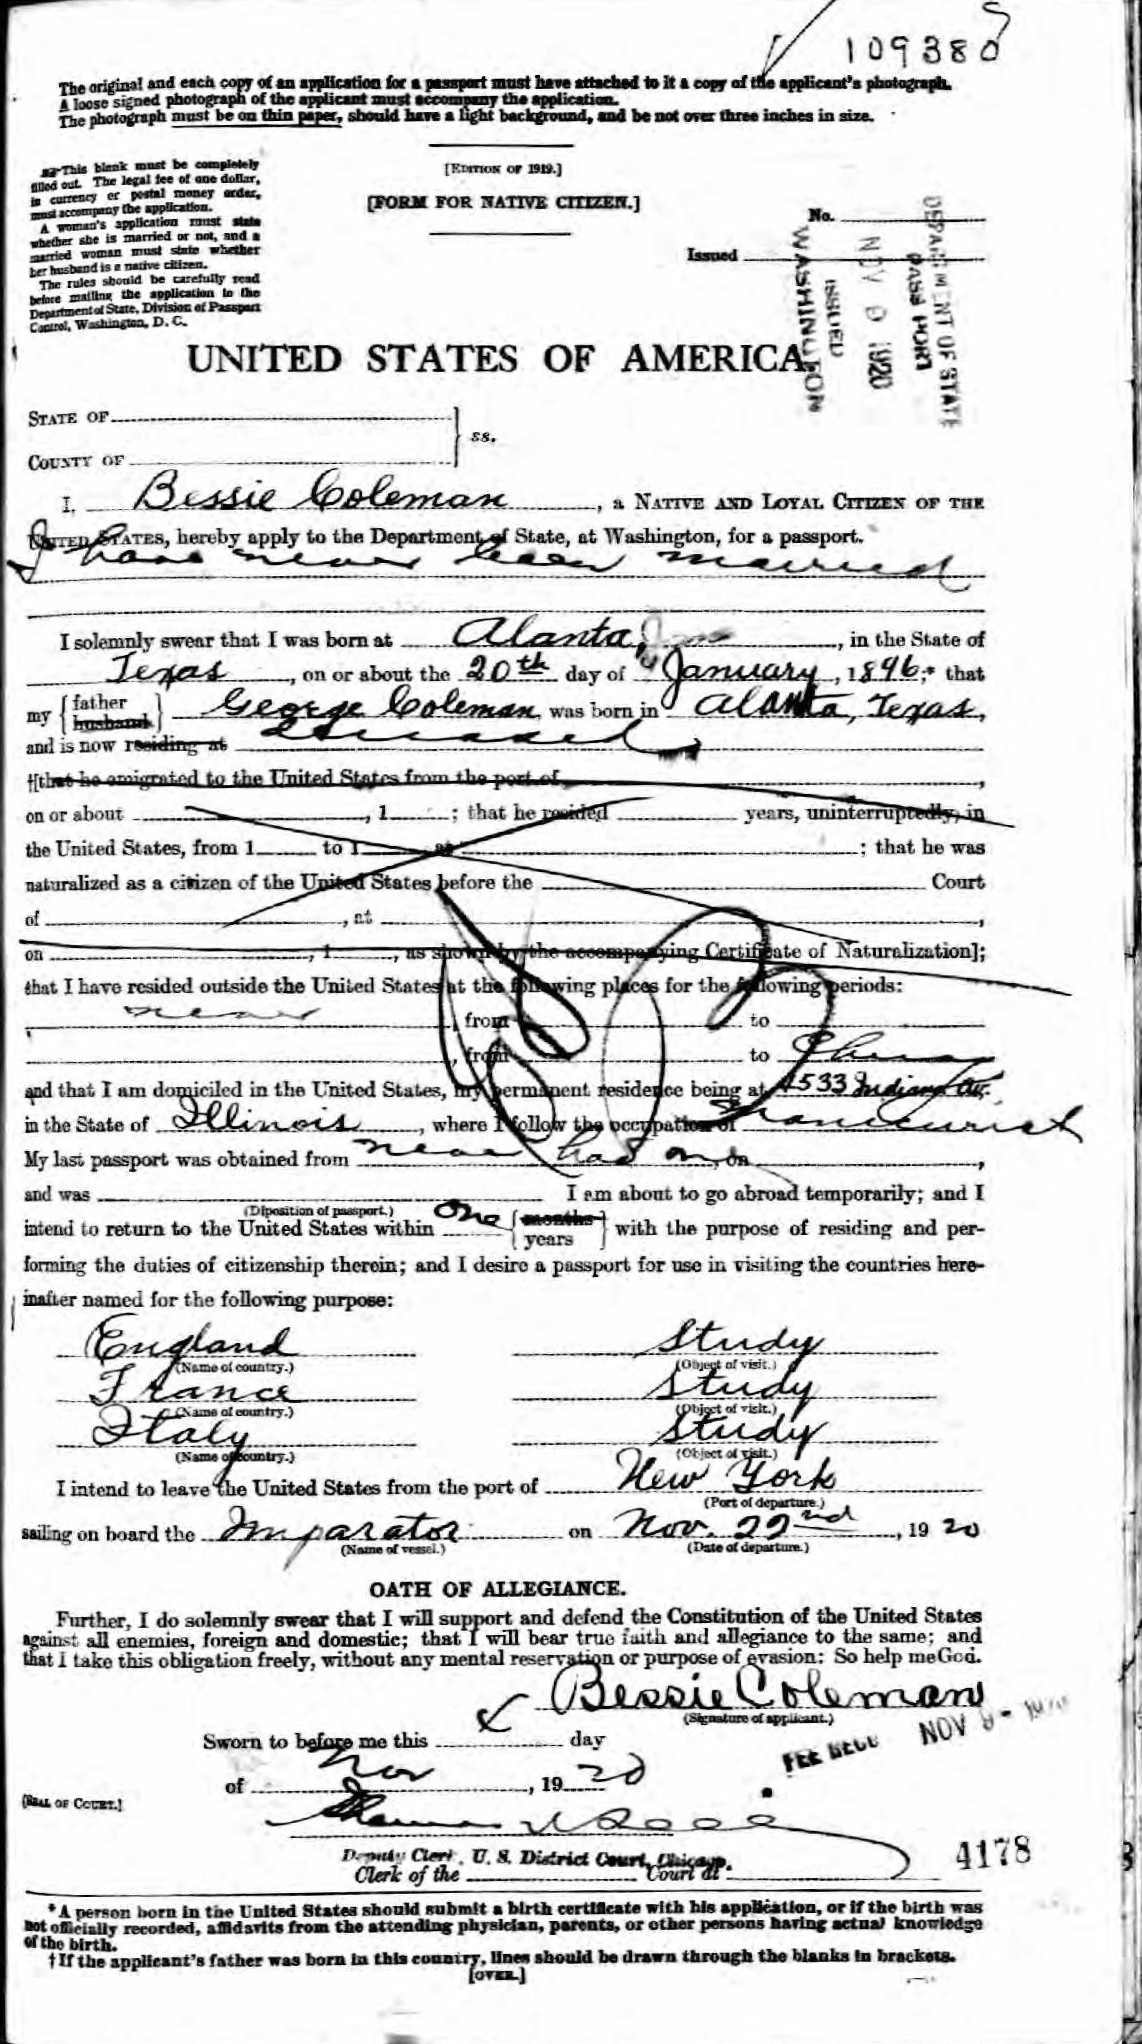 109380
The original and each copy of an application for a passport must have attached to it a copy of the applicant's photograph.
A loose signed photograph of the applicant must accompany the application.
The photograph must be on thin paper, should have a light background, and be not over three inches in size.
This blank must be completely
filled out. The legal fee of one dollar,
in currency or postal money order,
must accompany the application.
A woman's application must state
whether she is married or not, and a
married woman must state whether
her husband is a native citizen.
The rules should be carefully read
before mailing the application to the
Department of State, Division of Passport
Control, Washington, D. C.
[EDITION OF 1919.]
[FORM FOR NATIVE CITIZEN.]
No.
Issued
DEPARTMENT OF STATE
PASSPORT
NOV 9 1920
ISSUED
WASHINGTON
UNITED STATES OF AMERICA.
STATE OF
COUNTY OF
ss.
I, Bessie Coleman, a NATIVE AND LOYAL CITIZEN OF THE
UNITED STATES, hereby apply to the Department of State, at Washington, for a passport.
I have never been married
I solemnly swear that I was born at Alanta, in the State of
Texas, on or about the 20th day of January, 1896;* that
my {father husband} George Coleman, was born in Alanta, Texas,
and is now residing at deceased
†[that he emigrated to the United States from the port of ,
on or about , 1 ; that he resided years, uninterruptedly, in
the United States, from 1 to 1 at ; that he was
naturalized as a citizen of the United States before the Court
of , at ,
on , 1 , as shown by the accompanying Certificate of Naturalization];
that I have resided outside the United States at the following places for the following periods:
never , from to
, from to Chicago
and that I am domiciled in the United States, my permanent residence being at 4533 Indiana Av.
in the State of Illinois, where I follow the occupation of Manicurist
My last passport was obtained from never had one, on ,
and was I am about to go abroad temporarily; and I
(Diposition of passport.)
intend to return to the United States within One {months years} with the purpose of residing and per-
forming the duties of citizenship therein; and I desire a passport for use in visiting the countries here-
inafter named for the following purpose:
England Study
(Name of country.) (Object of visit.)
France Study
(Name of country.) (Object of visit.)
Italy Study
(Name of country.) (Object of visit.)
I intend to leave the United States from the port of New York
(Port of departure.)
sailing on board the Imparator on Nov. 22nd, 1920
(Name of vessel.) (Date of departure.)
OATH OF ALLEGIANCE.
Further, I do solemnly swear that I will support and defend the Constitution of the United States
against all enemies, foreign and domestic; that I will bear true faith and allegiance to the same; and
that I take this obligation freely, without any mental reservation or purpose of evasion: So help me God.
Bessie Coleman
(Signature of applicant.)
Sworn to before me this day
FEE RECD NOV 9 - 1920
of Nov, 1920
[SEAL OF COURT.]
Deputy Clerk, U. S. District Court, Chicago.
Clerk of the Court at
4178
*A person born in the United States should submit a birth certificate with his application, or if the birth was
not officially recorded, affidavits from the attending physician, parents, or other persons having actual knowledge
of the birth.
†If the applicant's father was born in this country, lines should be drawn through the blanks in brackets.
[OVER.]